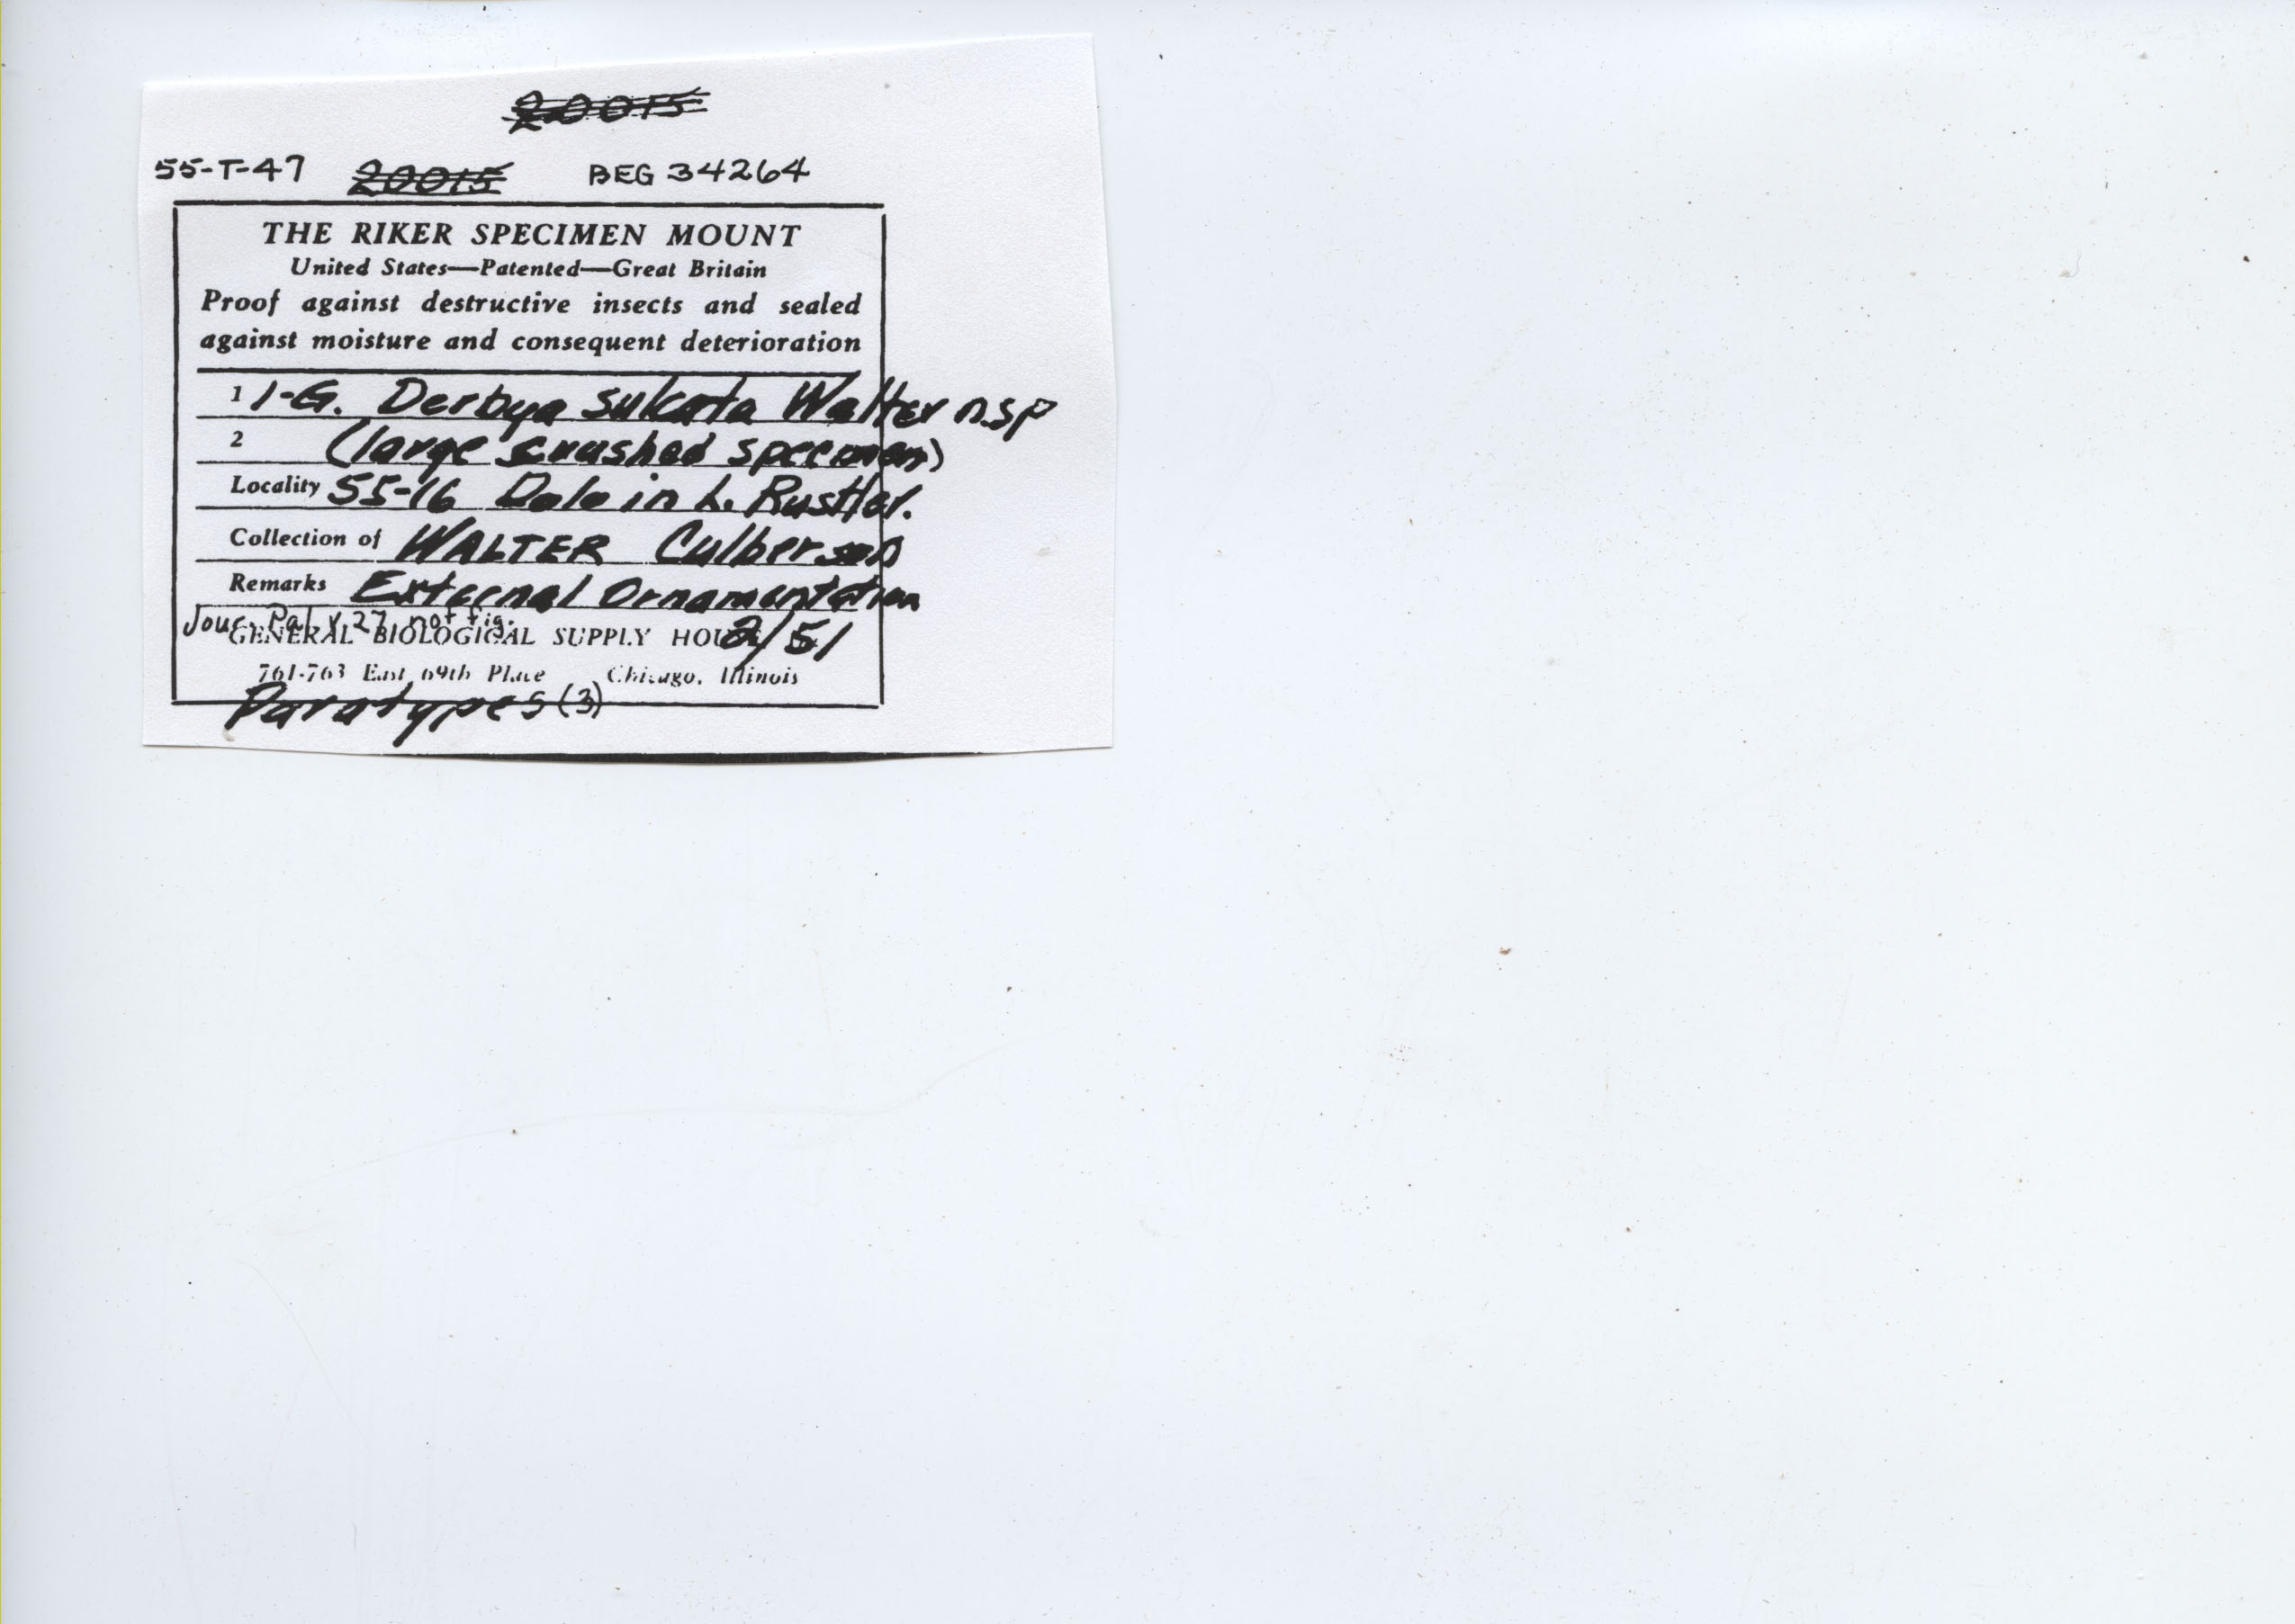 20015
55-T-47 20015 BEG 34264
THE RIKER SPECIMEN MOUNT
United States—Patented—Great Britain
Proof against destructive insects and sealed
against moisture and consequent deterioration
1 1-G. Derbya sulcata Walter n.sp
2 (large crushed specimen)
Locality 55-16 Dolo in L. Rustler.
Collection of WALTER Culberson
Remarks External Ornamentation
Jour. Pal v. 27 not fig.
GENERAL BIOLOGICAL SUPPLY HOUSE 2/51
761-763 East 69th Place Chicago, Illinois
Paratypes (3)